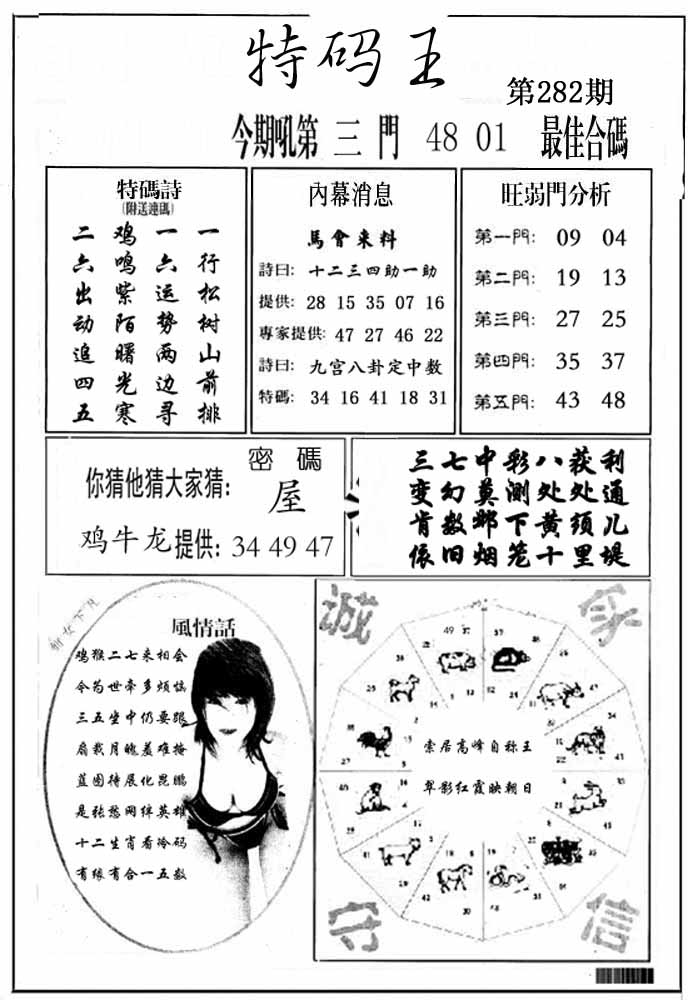 特码王
第282期
今期吼第 三門 48 01 最佳合碼
特碼詩
(附送連碼)
一行松树山前排
一六运势两边寻
鸡鸣紫陌曙光寒
二六出动追四五
內幕消息
馬會来料
詩曰: 十二三四助一助
提供: 28 15 35 07 16
專家提供: 47 27 46 22
詩曰: 九宫八卦定中数
特碼: 34 16 41 18 31
旺弱門分析
第一門: 09 04
第二門: 19 13
第三門: 27 25
第四門: 35 37
第五門: 43 48
密碼
你猜他猜大家猜: 屋
鸡牛龙提供: 34 49 47
三七中彩八获利
变幻莫测处处通
肯数邺下黄须儿
依旧烟笼十里堤
仙女下凡
風情話
鸡猴二七来相会
令为世牵多烦恼
三五坐中仍要跟
扇裁月魄羞难掩
蓝图待展化昆鹏
是张愁网绊英雄
十二生肖看冷码
有缘有合一五数
诚
家
索居高峰自称王
翠影红霞映朝日
守
信